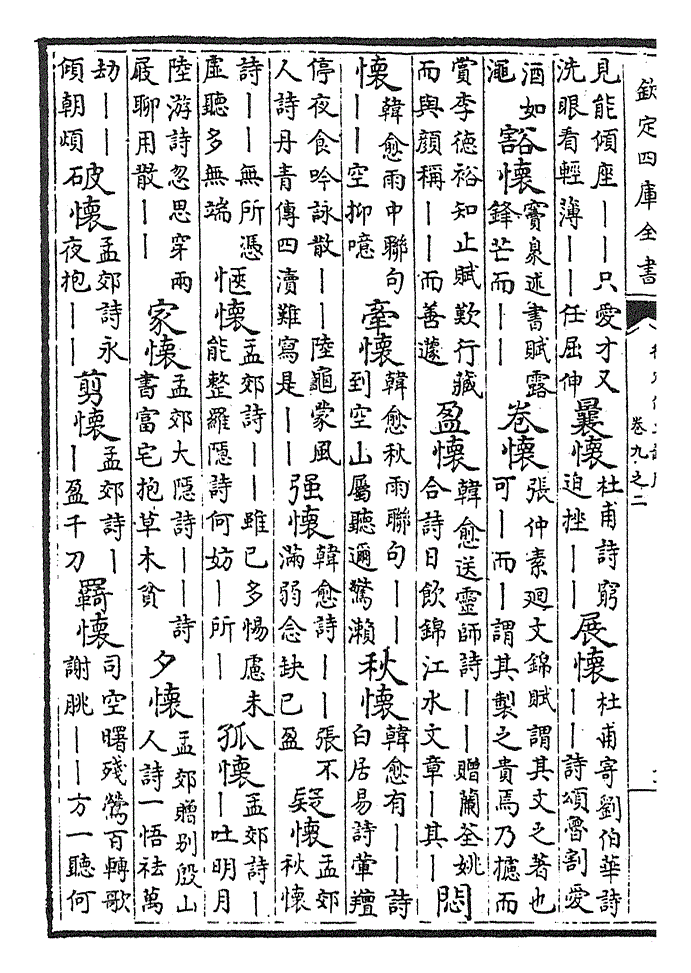 欽定四庫全書
卷九之二
見能傾座——只愛才又
洗眼看輕薄——任屈伸
曩懷
杜甫詩窮
迫挫——
展懷
杜甫寄劉伯華詩
——詩頌魯割愛
酒如
澠
豁懷
竇泉述書賦露
鋒芒而——
卷懷
張仲素廻文錦賦謂其文之著也
可—而—謂其製之貴焉乃攄而
賞李德裕知止賦歎行藏
而與顔稱——而善遽
盈懷
韓愈送靈師詩——贈蘭荃姚
合詩日飲錦江水文章—其—
悶
懷
韓愈雨中聯句
——空抑噫
牽懷
韓愈秋雨聯句——
到空山屬聽邇驚瀨
秋懷
韓愈有——詩
白居易詩葷羶
停夜食吟詠散——陸龜蒙風
人詩丹青傳四瀆難寫是——
强懷
韓愈詩——張不
滿弱念缺已盈
疑懷
孟郊
秋懷
詩——無所憑
虛聽多無端
愜懷
孟郊詩——雖已多惕慮未
能整羅隱詩何妨—所—
孤懷
孟郊詩—
—吐明月
陸游詩忽思穿兩
屐聊用散——
家懷
孟郊大隱詩——詩
書富宅抱草木貧
夕懷
孟郊贈别殷山
人詩一悟袪萬
劫——
傾朝煩
破懷
孟郊詩永
夜抱——
剪懷
孟郊詩—
—盈千刀
羇懷
司空曙殘鶯百轉歌
謝朓——方一聽何